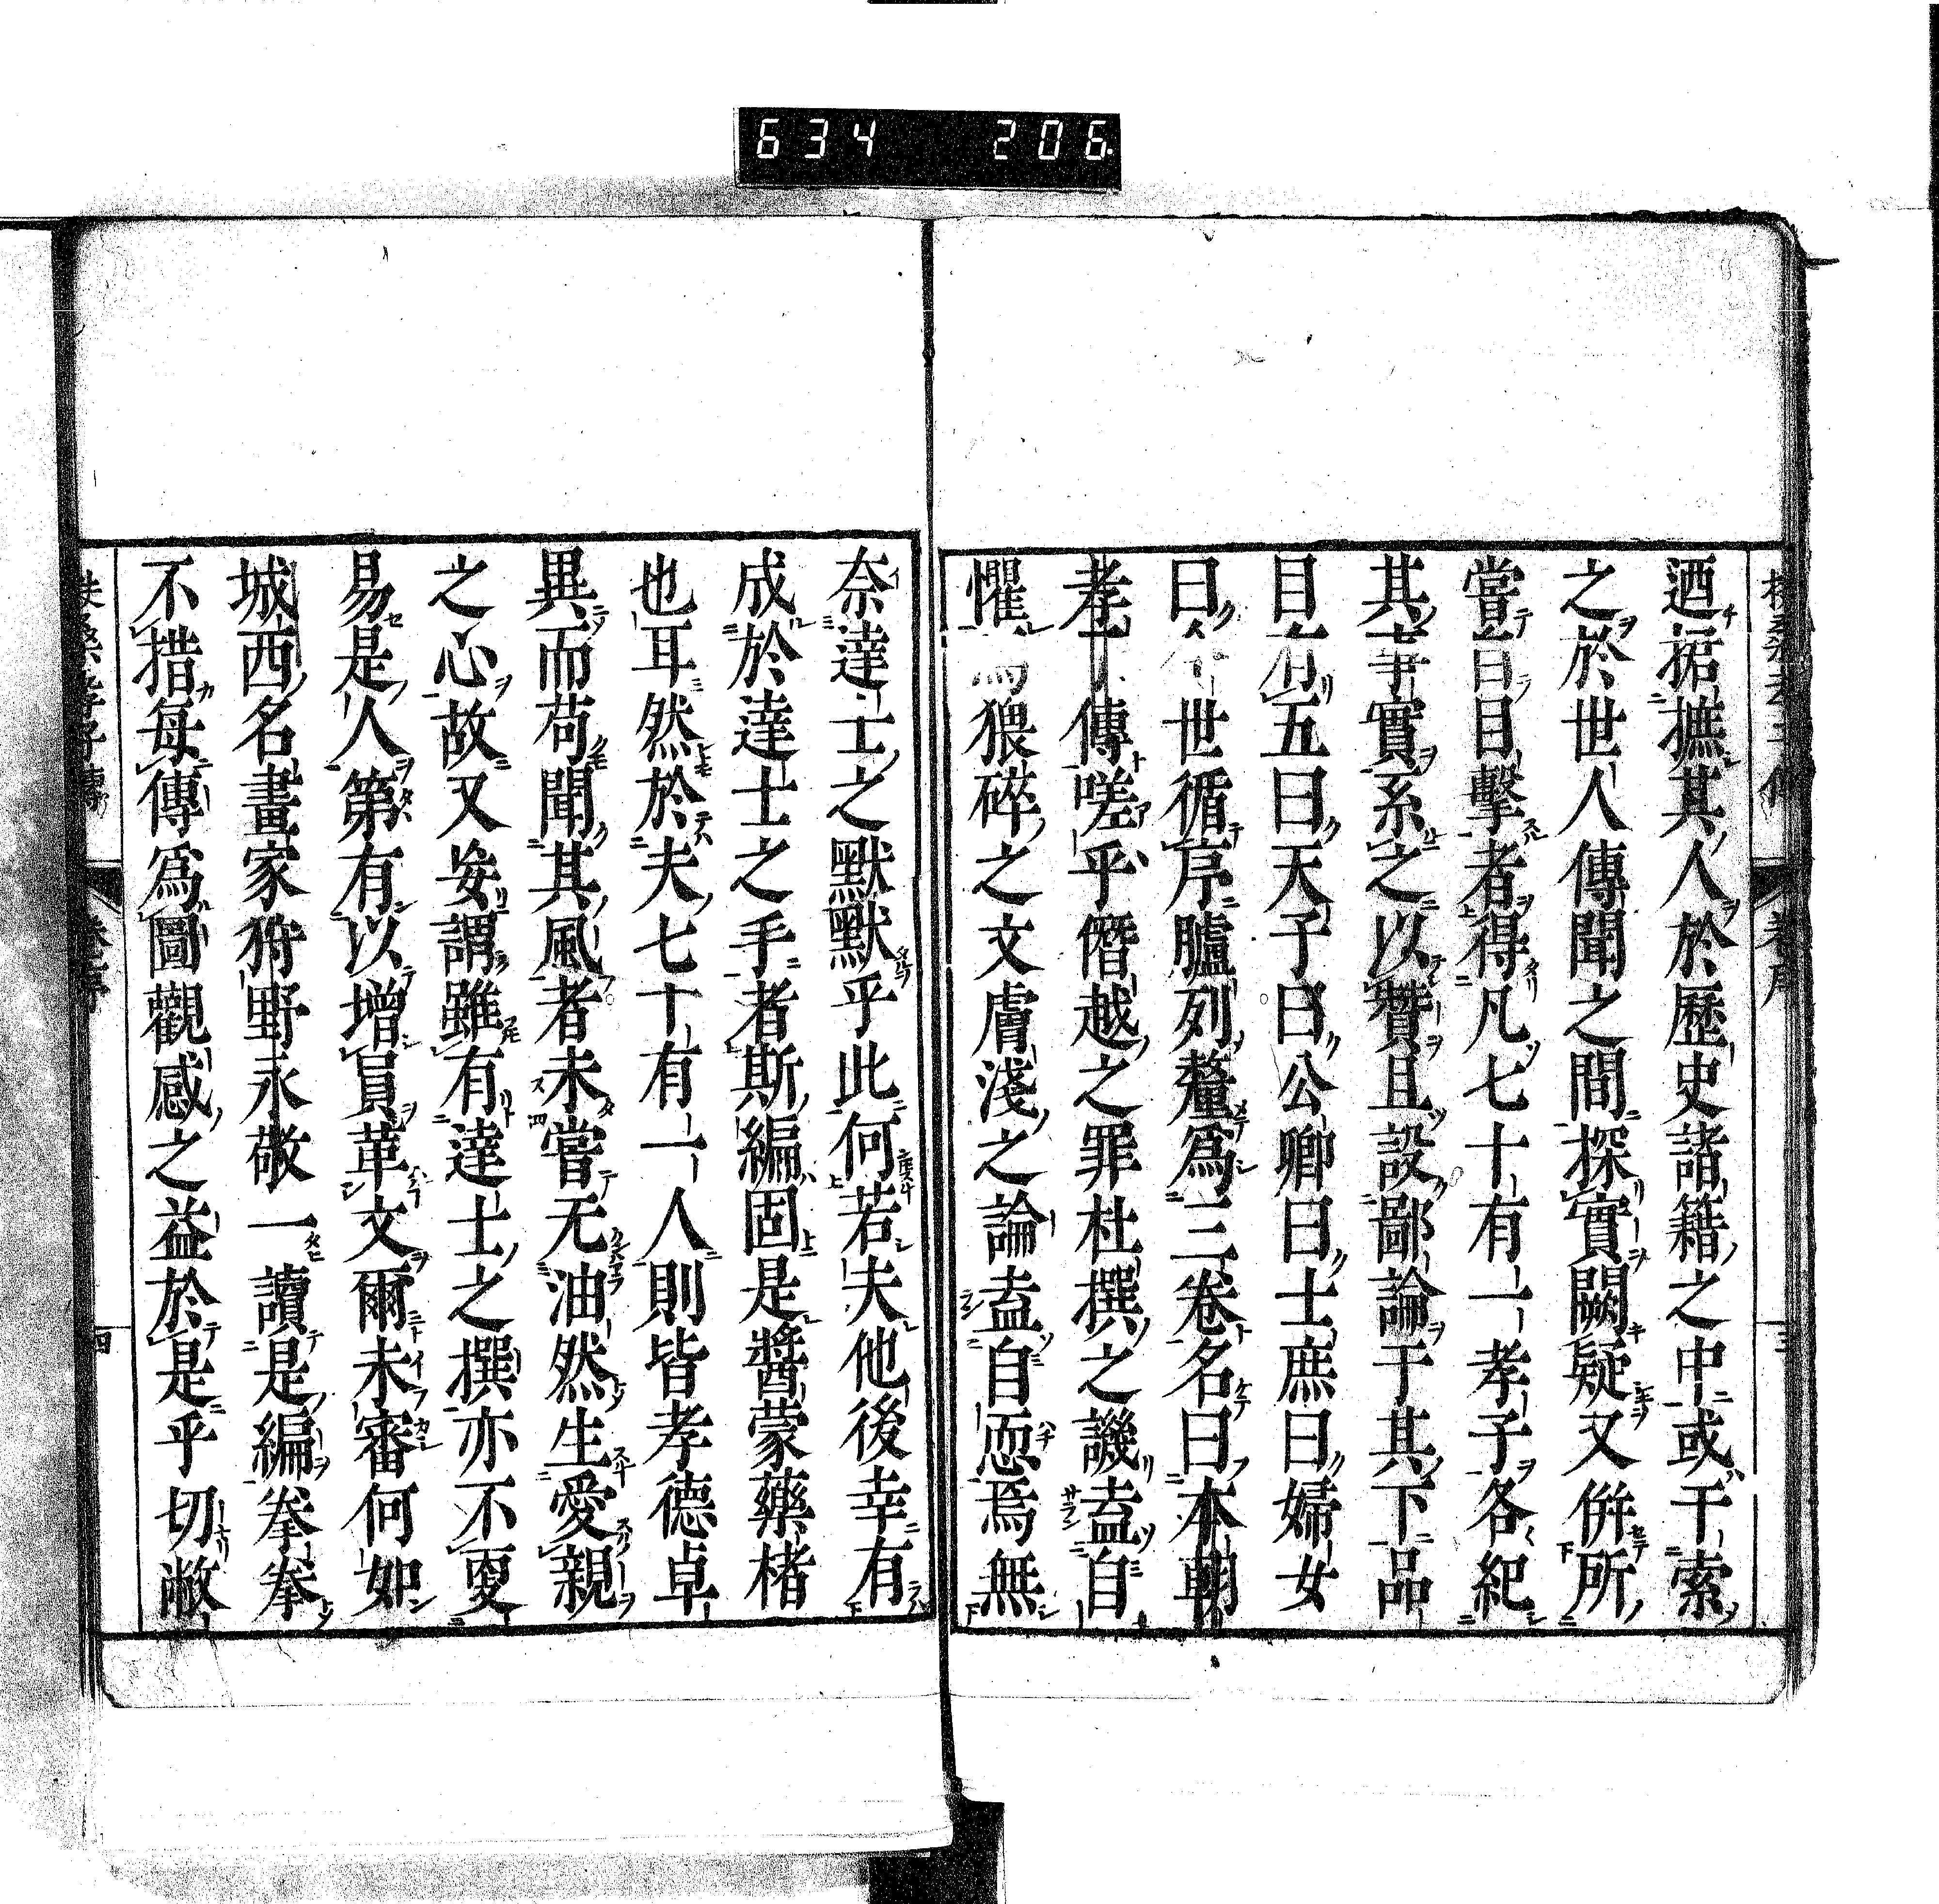 634 206
迺据摭其人於歷史諸籍之中或干索
之於世人傳聞之間探實闕疑又併所
嘗自目擊者得凡七十有一孝子各紀
其事實系之以贊且設鄙論于其下品
目有五曰天子曰公卿曰士庶曰婦女
曰今世循序臚列釐爲三卷名曰本朝
孝子傳嗟乎僭越之罪杜撰之譏盍自
懼爲猥碎之文膚淺之論盍自恧焉無
奈達士之默默乎此何若夫他後幸有
成於達士之手者斯編固是醬蒙藥楮
也耳然於夫七十有一人則皆孝德卓
異而苟聞其風者未嘗无油然生愛親
之心故又妄謂雖有達士之撰亦不更
易是人第有以增員革文爾未審何如
城西名畫家狩野永敬一讀是編拳拳
不措每傳爲圖觀感之益於是乎切敝